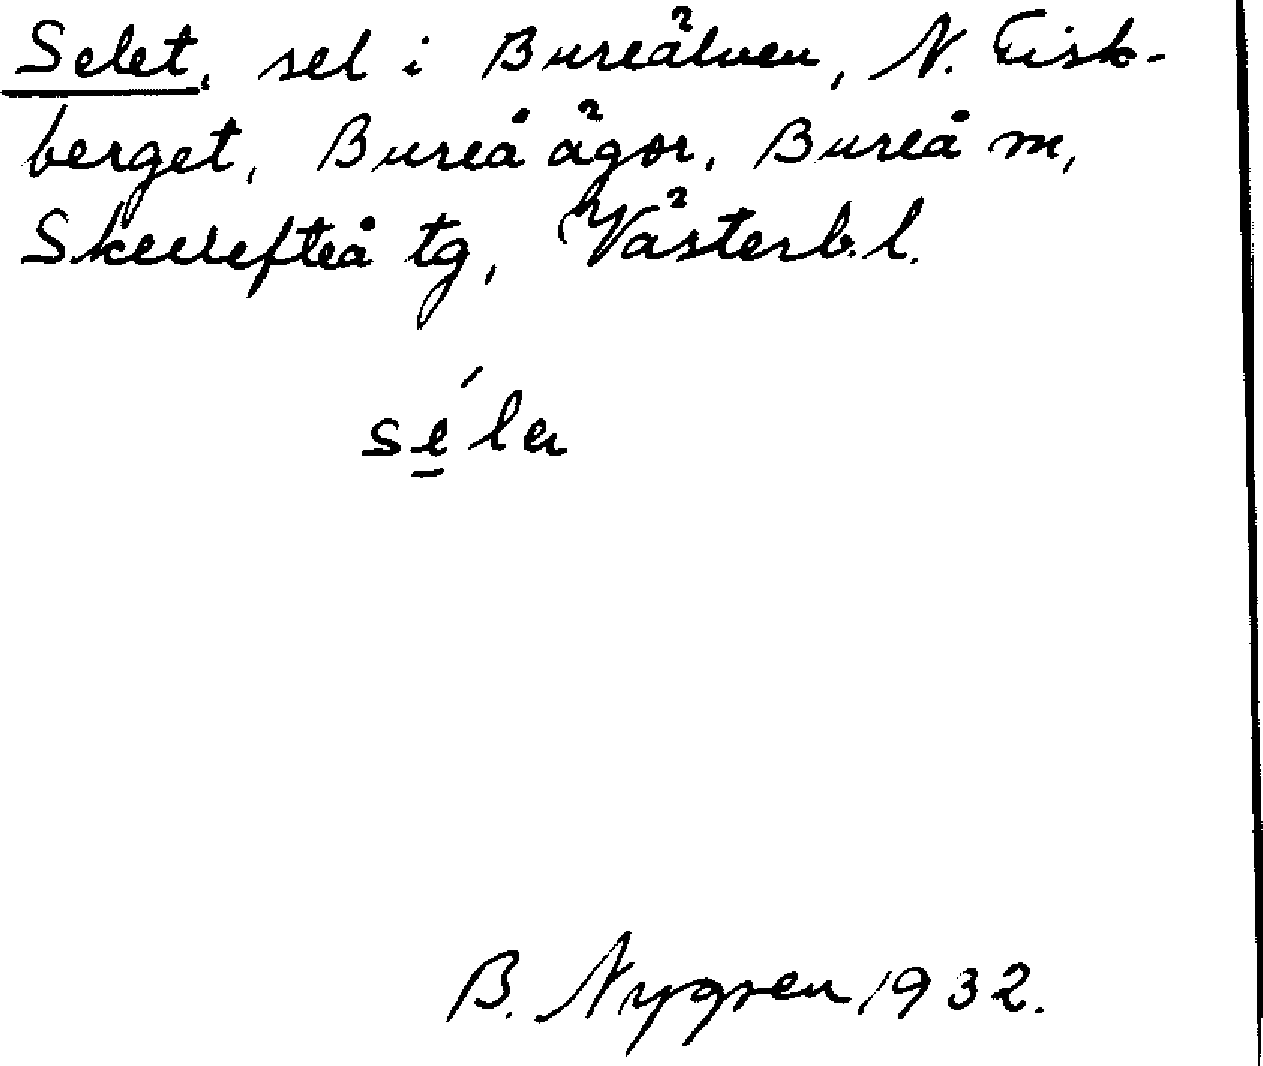 Selet, sel i Bureälven, N. Fisk-
berget, Bureå ägor, Bureå m,
Skellefteå tg, Västerb. l.
B. Nygren 1932.